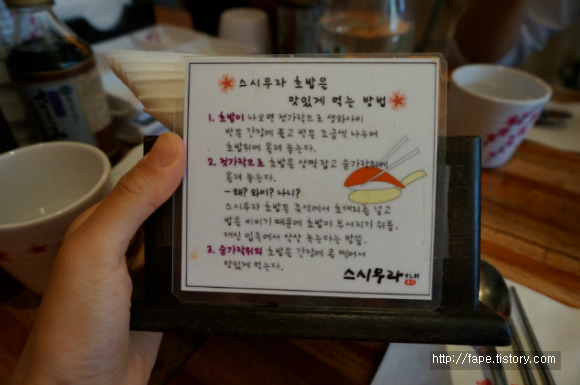 스시무라 초밥은
맛있게 먹는 방법
1. 초밥이 나오면 젓가락으로 생와사비
반은 간장에 풀고 반은 조금씩 나누어
초밥위에 올려 놓는다.
2. 젓가락으로 초밥은 살짝 잡고 숟가락위에
올려 놓는다.
- 왜? 와이? 나니?
스시무라 초밥은 즉석에서 초대리를 넣고
밥을 비비기 때문에 초밥이 부서지기 쉬움.
대신 입속에서 살살 녹는다는 말씀.
3. 숟가락위의 초밥은 간장에 콕 찍어서
맛있게 먹는다.
스시무라
http://fape.tistory.com